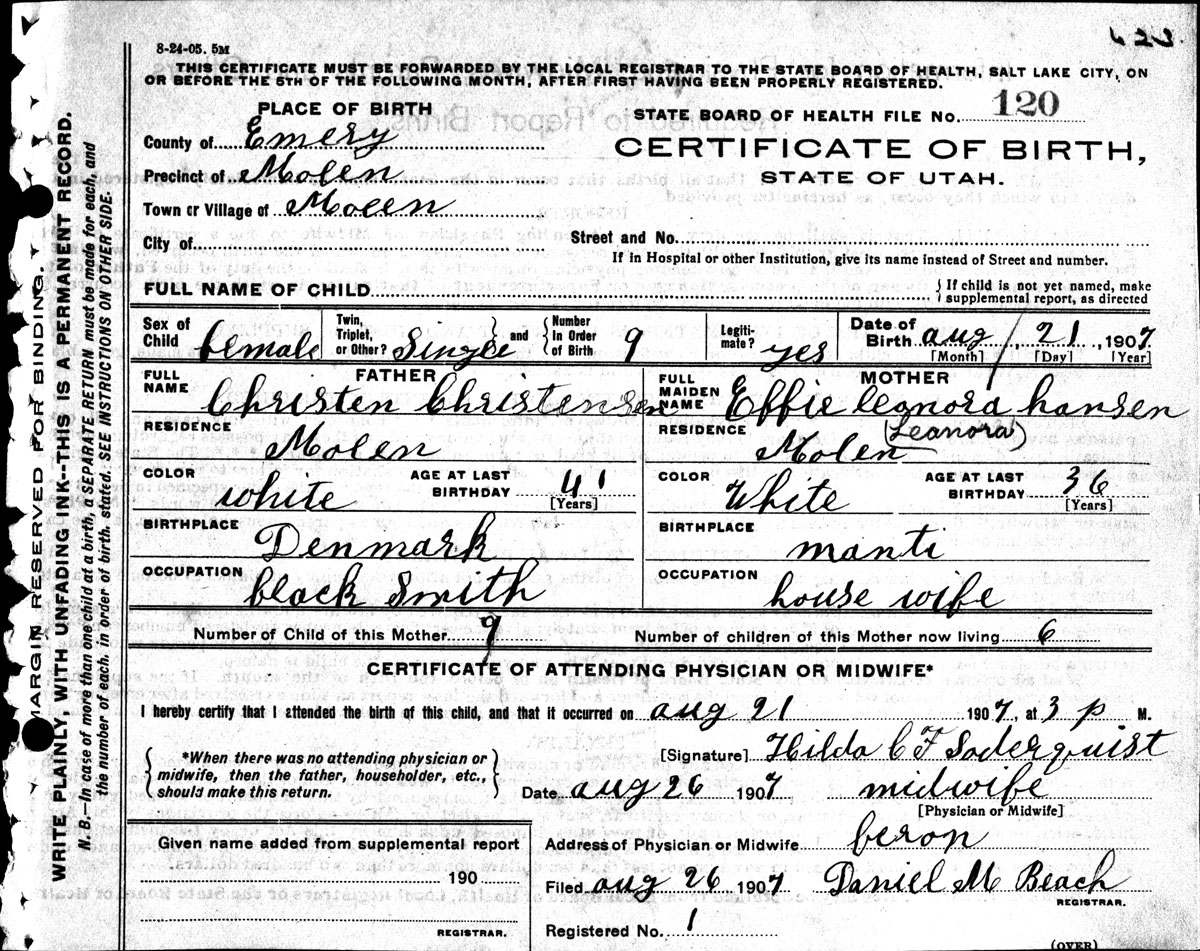 8-24-05. 5M
THIS CERTIFICATE MUST BE FORWARDED BY THE LOCAL REGISTRAR TO THE STATE BOARD OF HEALTH, SALT LAKE CITY, ON
OR BEFORE THE 5TH OF THE FOLLOWING MONTH, AFTER FIRST HAVING BEEN PROPERLY REGISTERED.
PLACE OF BIRTH
STATE BOARD OF HEALTH FILE No. 120
County of Emery
CERTIFICATE OF BIRTH,
Precinct of Molen
STATE OF UTAH.
Town or Village of Molen
City of
Street and No.
If in Hospital or other Institution, give its name instead of Street and number.
FULL NAME OF CHILD
If child is not yet named, make
supplemental report, as directed
Sex of Child female
Twin, Triplet, or Other? Single and Number In Order of Birth 9
Legitimate? yes
Date of Birth aug 21, 1907
[Month] [Day] [Year]
FATHER
FULL NAME Christen Christensen
RESIDENCE Molen
COLOR white
AGE AT LAST BIRTHDAY 41
[Years]
BIRTHPLACE Denmark
OCCUPATION black Smith
MOTHER
FULL MAIDEN NAME Effie Leonora hansen
(Leanora)
RESIDENCE Molen
COLOR White
AGE AT LAST BIRTHDAY 36
[Years]
BIRTHPLACE manti
OCCUPATION house wife
Number of Child of this Mother 9
Number of children of this Mother now living 6
CERTIFICATE OF ATTENDING PHYSICIAN OR MIDWIFE*
I hereby certify that I attended the birth of this child, and that it occurred on aug 21 1907, at 3 p M.
*When there was no attending physician or
midwife, then the father, householder, etc.,
should make this return.
[Signature] Hilda C F Soderquist
Date aug 26 1907 midwife
[Physician or Midwife]
Address of Physician or Midwife feron
Filed aug 26 1907 Daniel M Beach
REGISTRAR.
Registered No. 1
(OVER)
Given name added from supplemental report
190
REGISTRAR.
MARGIN RESERVED FOR BINDING.
WRITE PLAINLY, WITH UNFADING INK--THIS IS A PERMANENT RECORD.
N. B.--In case of more than one child at a birth, a SEPARATE RETURN must be made for each, and
the number of each, in order of birth, stated. SEE INSTRUCTIONS ON OTHER SIDE.